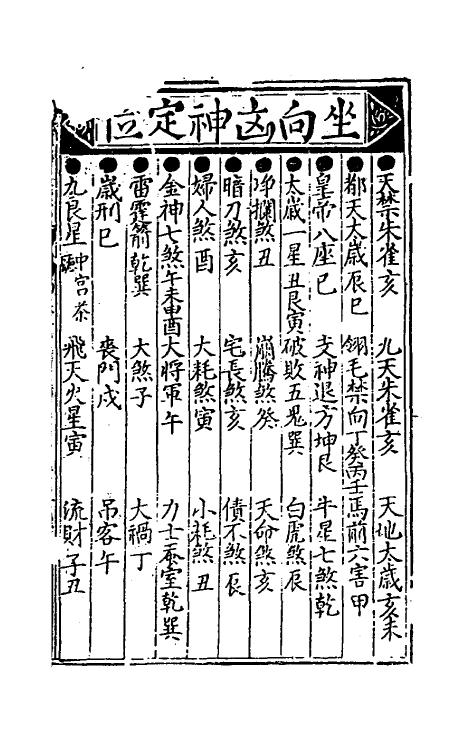 坐向凶神定位
天禁朱雀亥 九天朱雀亥 天地太歲亥未
都天太歲辰巳 翎毛禁向丁癸丙壬 馬前六害甲
皇帝八座巳 支神退方坤艮 牛星七煞乾
太歲一星丑艮寅 破敗五鬼巽 白虎煞辰
爭攔煞丑 崩騰煞癸 天命煞亥
暗刀煞亥 宅長煞亥 債不煞辰
婦人煞酉 大耗煞寅 小耗煞丑
金神七煞午未申酉 大將軍午 力士蚕室乾巽
雷霆箭乾巽 大煞子 大禍丁
歲刑巳 喪門戌 吊客午
九良星中宮 飛天火星寅 流財子丑